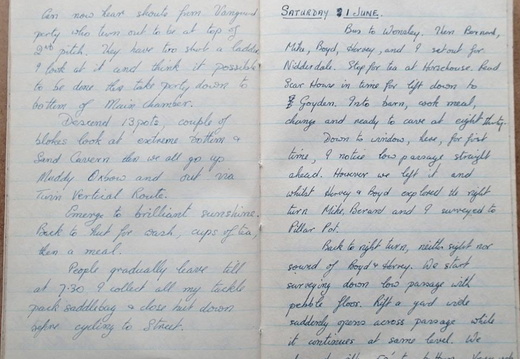 Can now hear shouts from Vanguard
party who turn out to be at top of
2nd pitch. They have too short a ladder
I look at it and think it possible
to be done this take party down to
bottom of Main Chamber.
Descend 13 pots, couple of
blokes look at extreme bottom &
Sand Cavern then we all go up
Muddy Oxbow and out via
Twin Vertical Route.
Emerge to brilliant sunshine.
Back to Hut for wash, cups of tea,
then a meal.
People gradually leave till
at 7:30 I collect all my tackle
pack saddlebag & close hut down
before cycling to Street.
SATURDAY 1 JUNE.
Bus to Wensley. Then Bernard,
Mike, Boyd, Harvey, and I set out for
Nidderdale. Stop for tea at Horsehouse. Read
Scar House in time for left down to
Goyden. Into barn, cook meal,
change and ready to cave at eight thirty.
Down to window, here, for first
time, I notice low passage straight
ahead. However we left it and
whilst Harvey & Boyd explored the right
turn Mike, Bernard and I surveyed to
Pillar Pot.
Back to right turn, neither sight nor
sound of Boyd & Harvey. We start
surveying down low passage with
pebble floor. Rift a yard wide
suddenly opens across passage while
it continues at same level. We